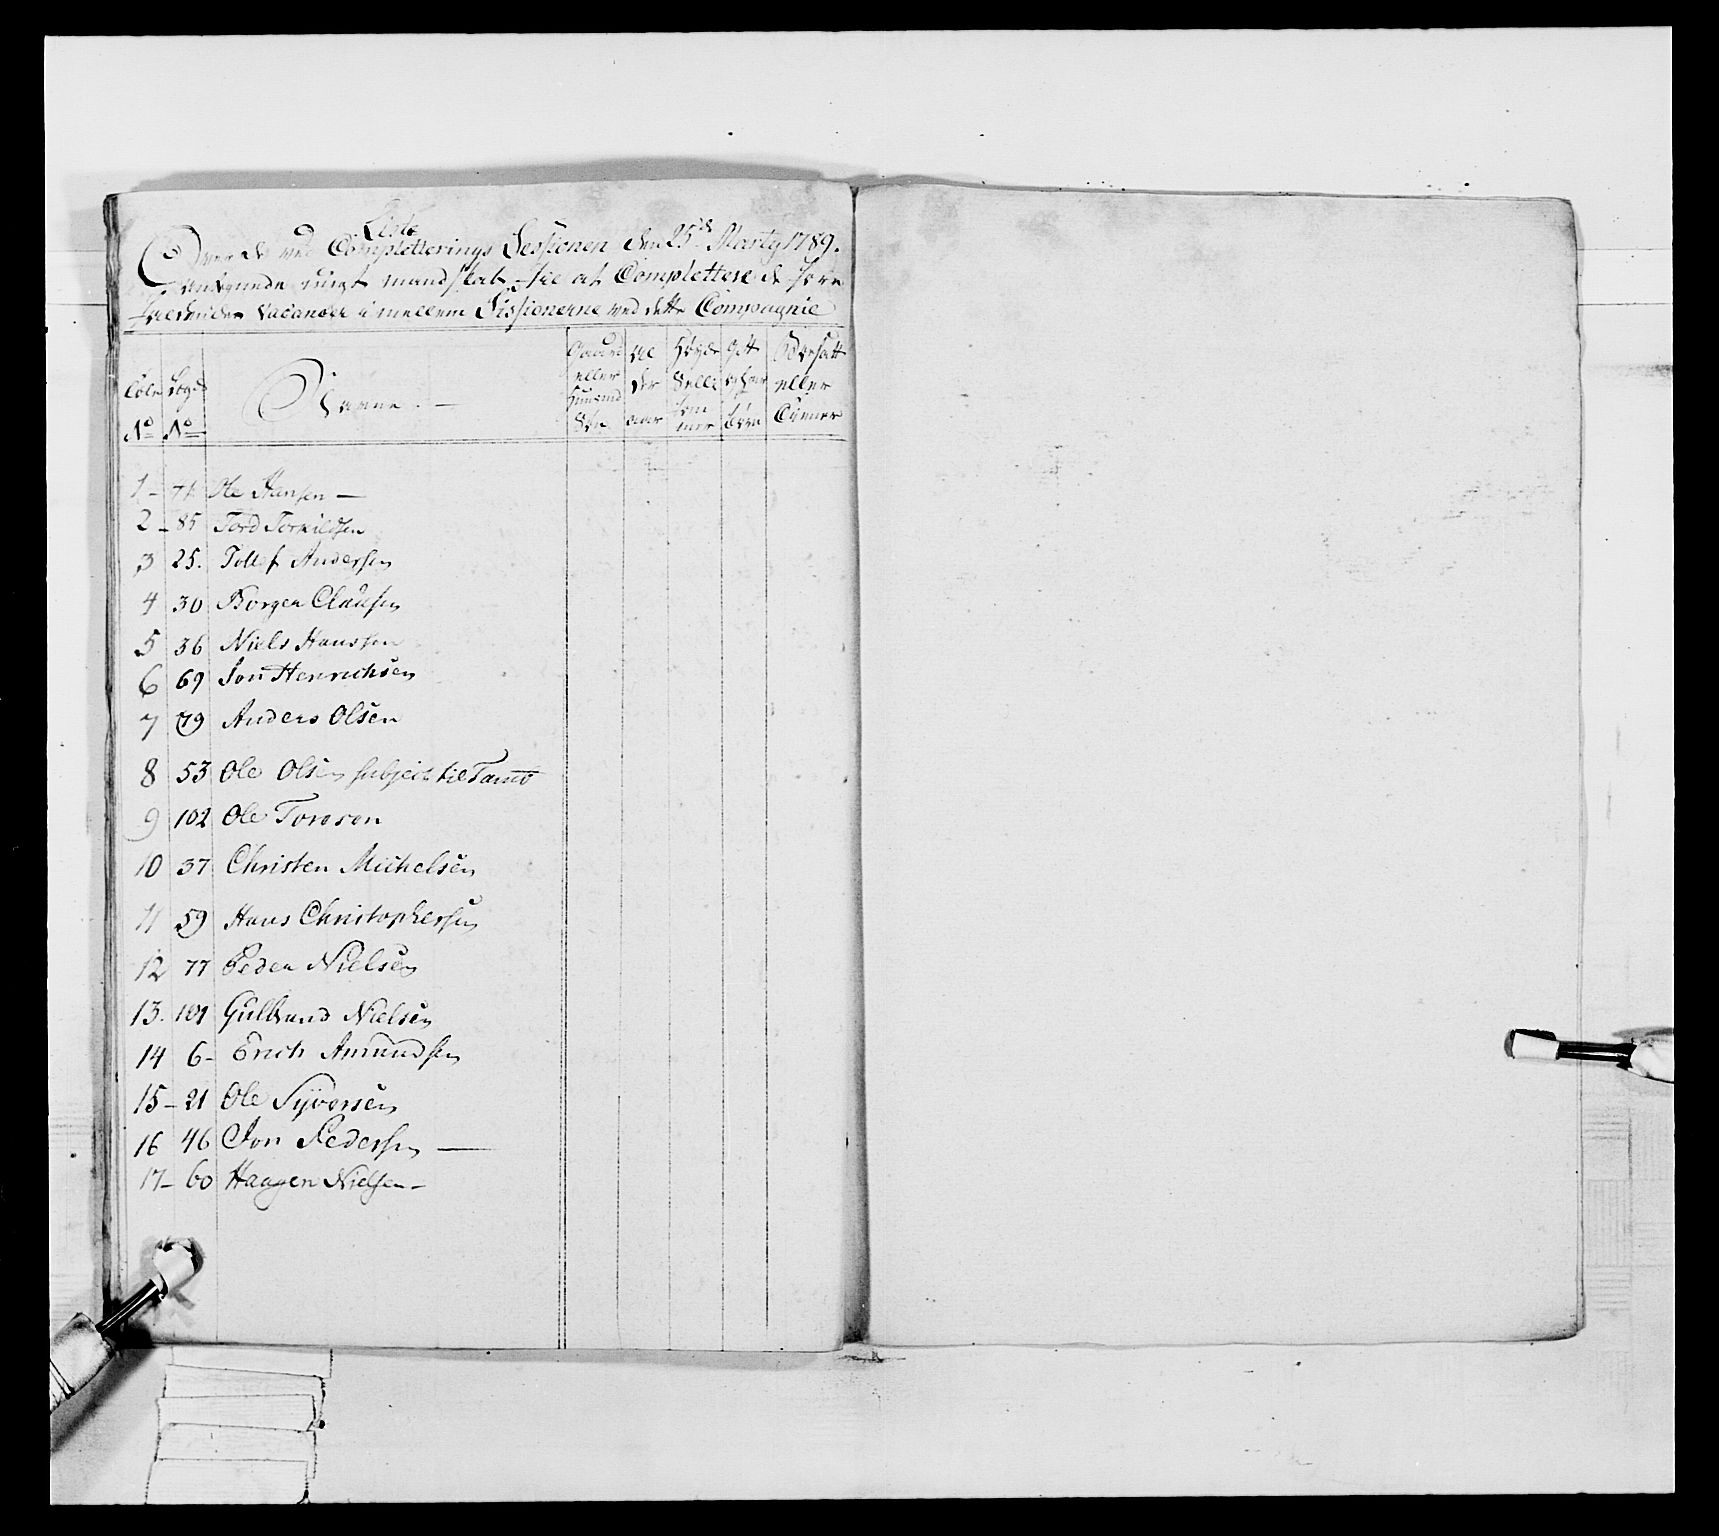 Liste
Over de ved Completterings Sessionen den 25de Marty 1789.
ungt mandskab til at Complettere de fore
faldende Vacancer imellem Sessionerne ved dette Compagnie
Navne. —
eller
Søn
Al
der
aar
Høyde
Gift
børn
eller
No No
1 - 71 Ole Hansen —
2 - 85 Tord Torkildsen
3 25. Tollef Andersen
4 30 Borger Clausen
5 36 Niels Hanssen
6 69 Jon Henrichsen
7 79 Anders Olsen
8 53 Ole Olsen subject til Tambr
9 102 Ole Toresen
10 37 Christen Michelsen
11 59 Hans Christophersen
12 77 Peder Nielsen
13. 101 Gulbrand Nielsen
14 6- Erich Amundsen
15 - 21 Ole Syversen
16 46 Jon Pedersen —
17 - 60 Haagen Nielsen -